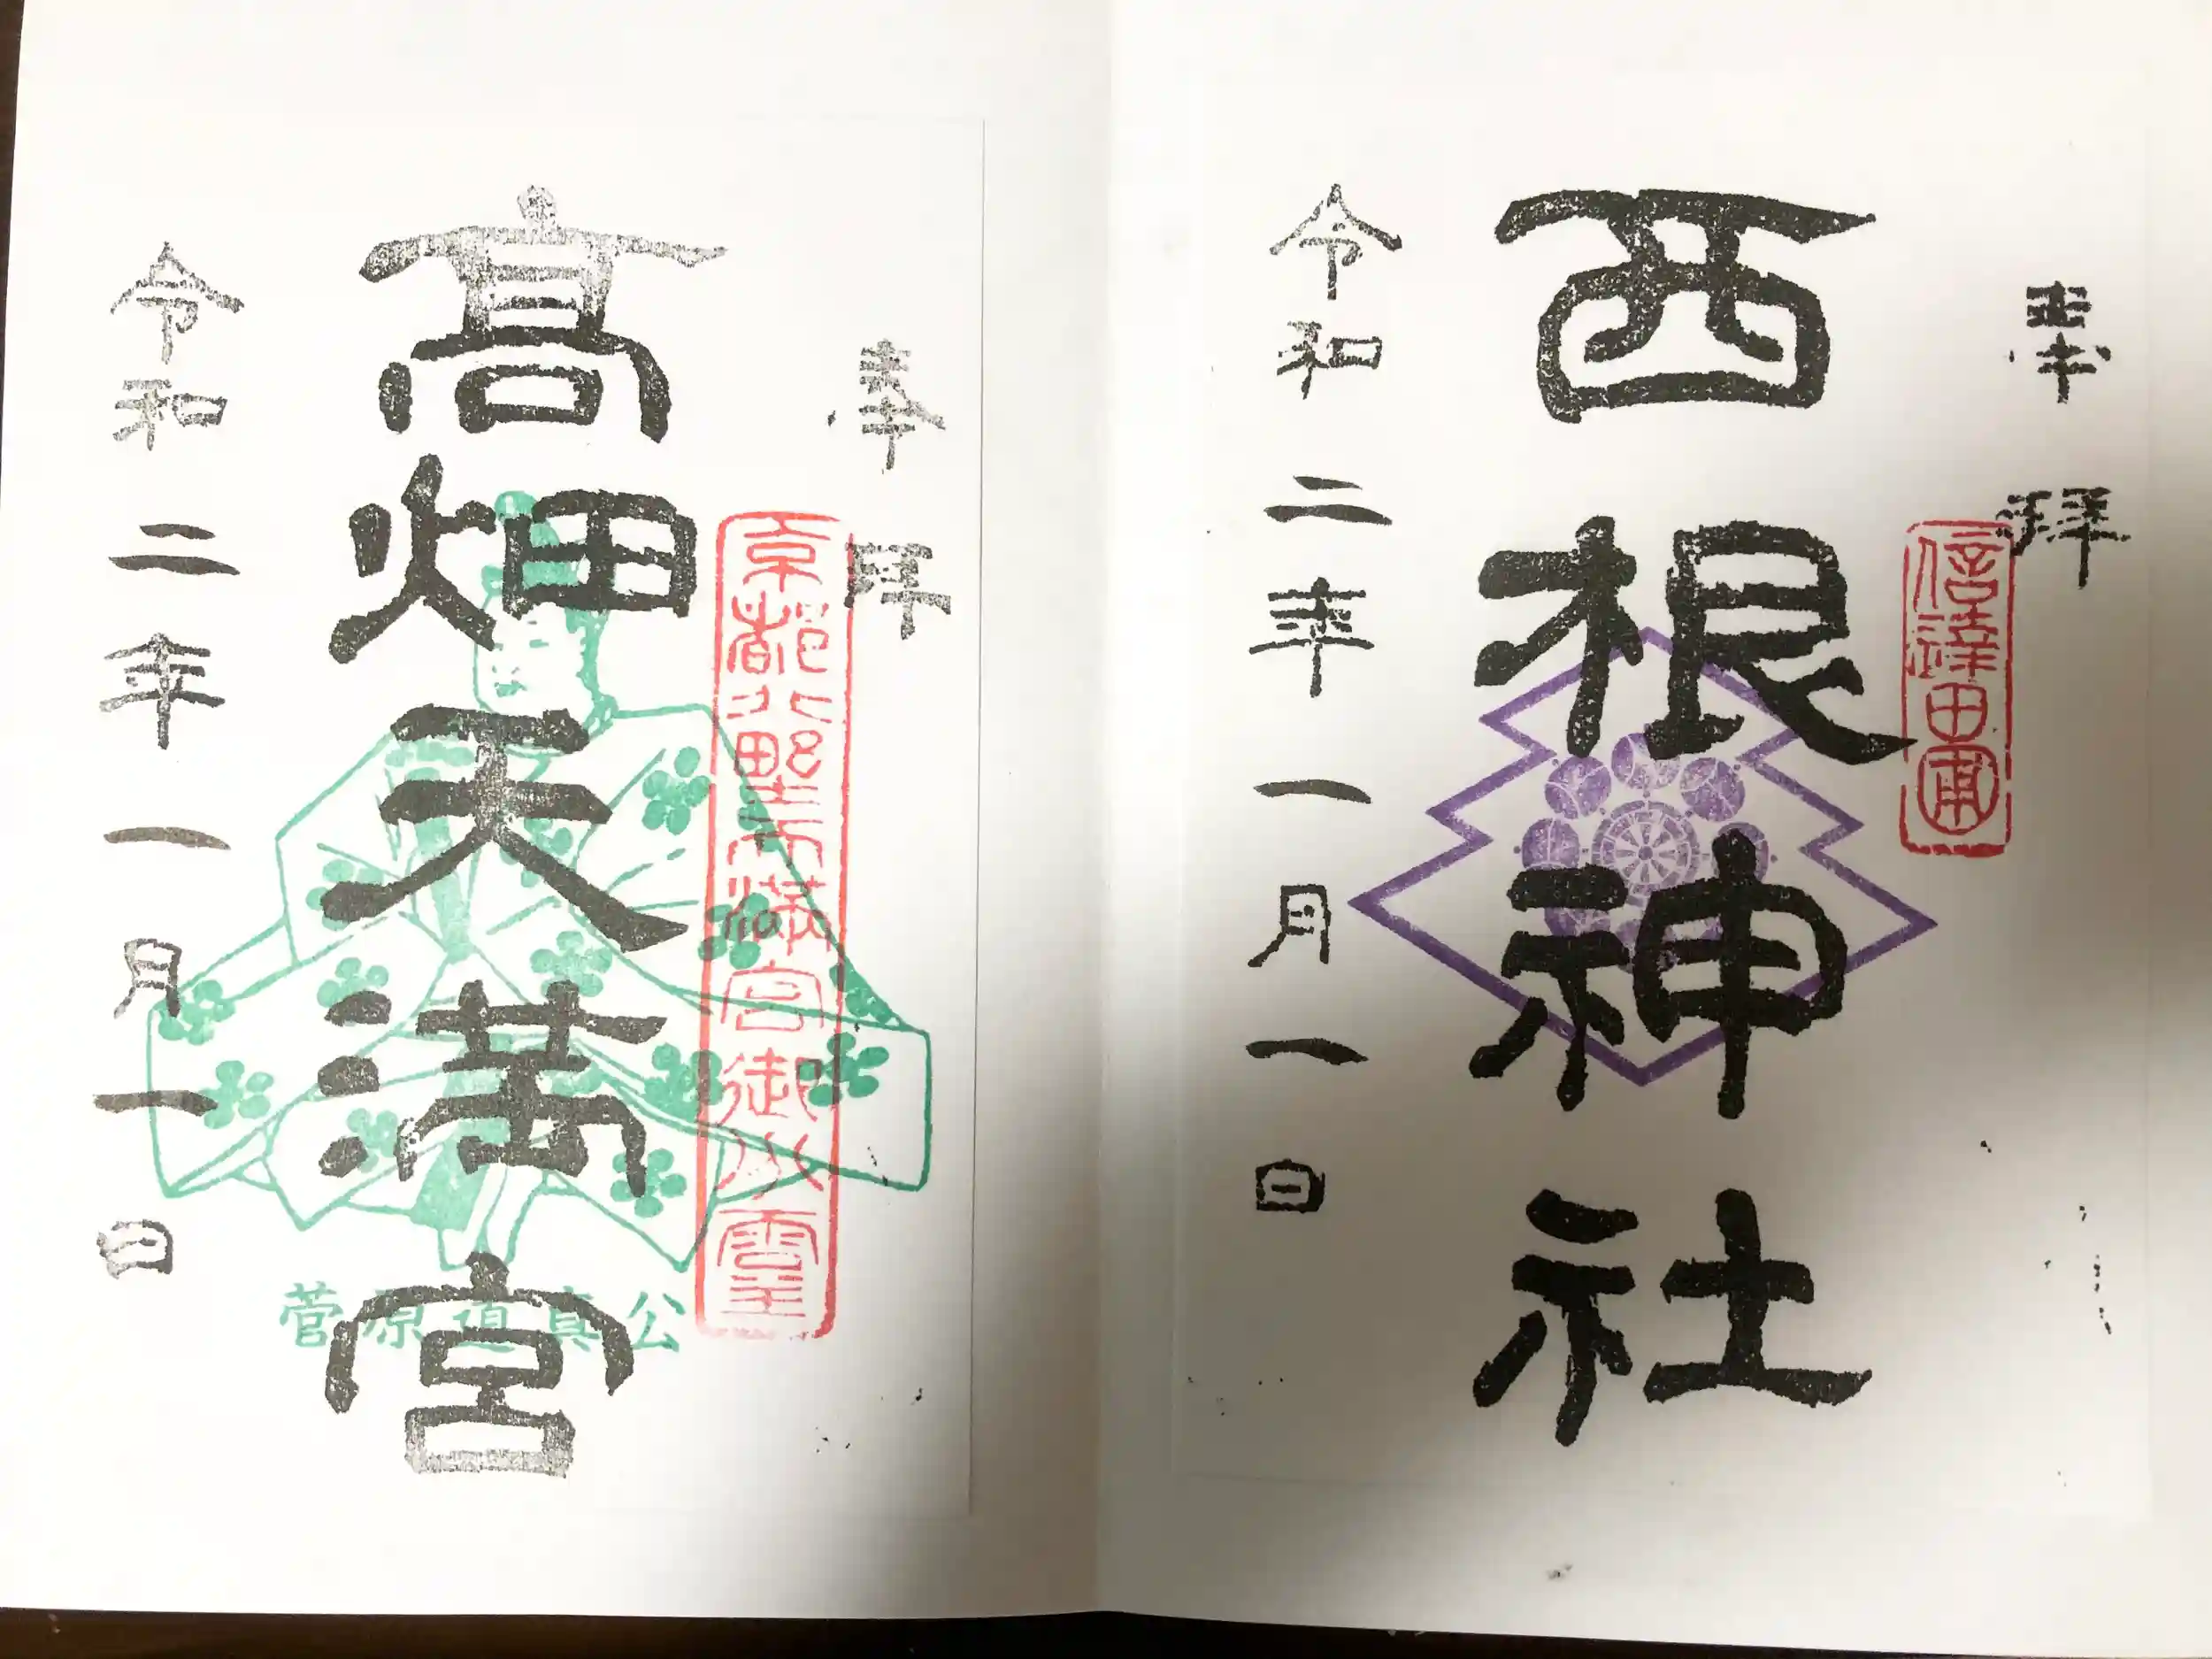 奉拝
信達田圃
西根神社
令和二年一月一日
奉拝
京都北野天満宮御分霊
高畑天満宮
菅原道真公
令和二年一月一日